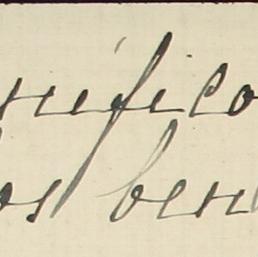 nífico
os ben